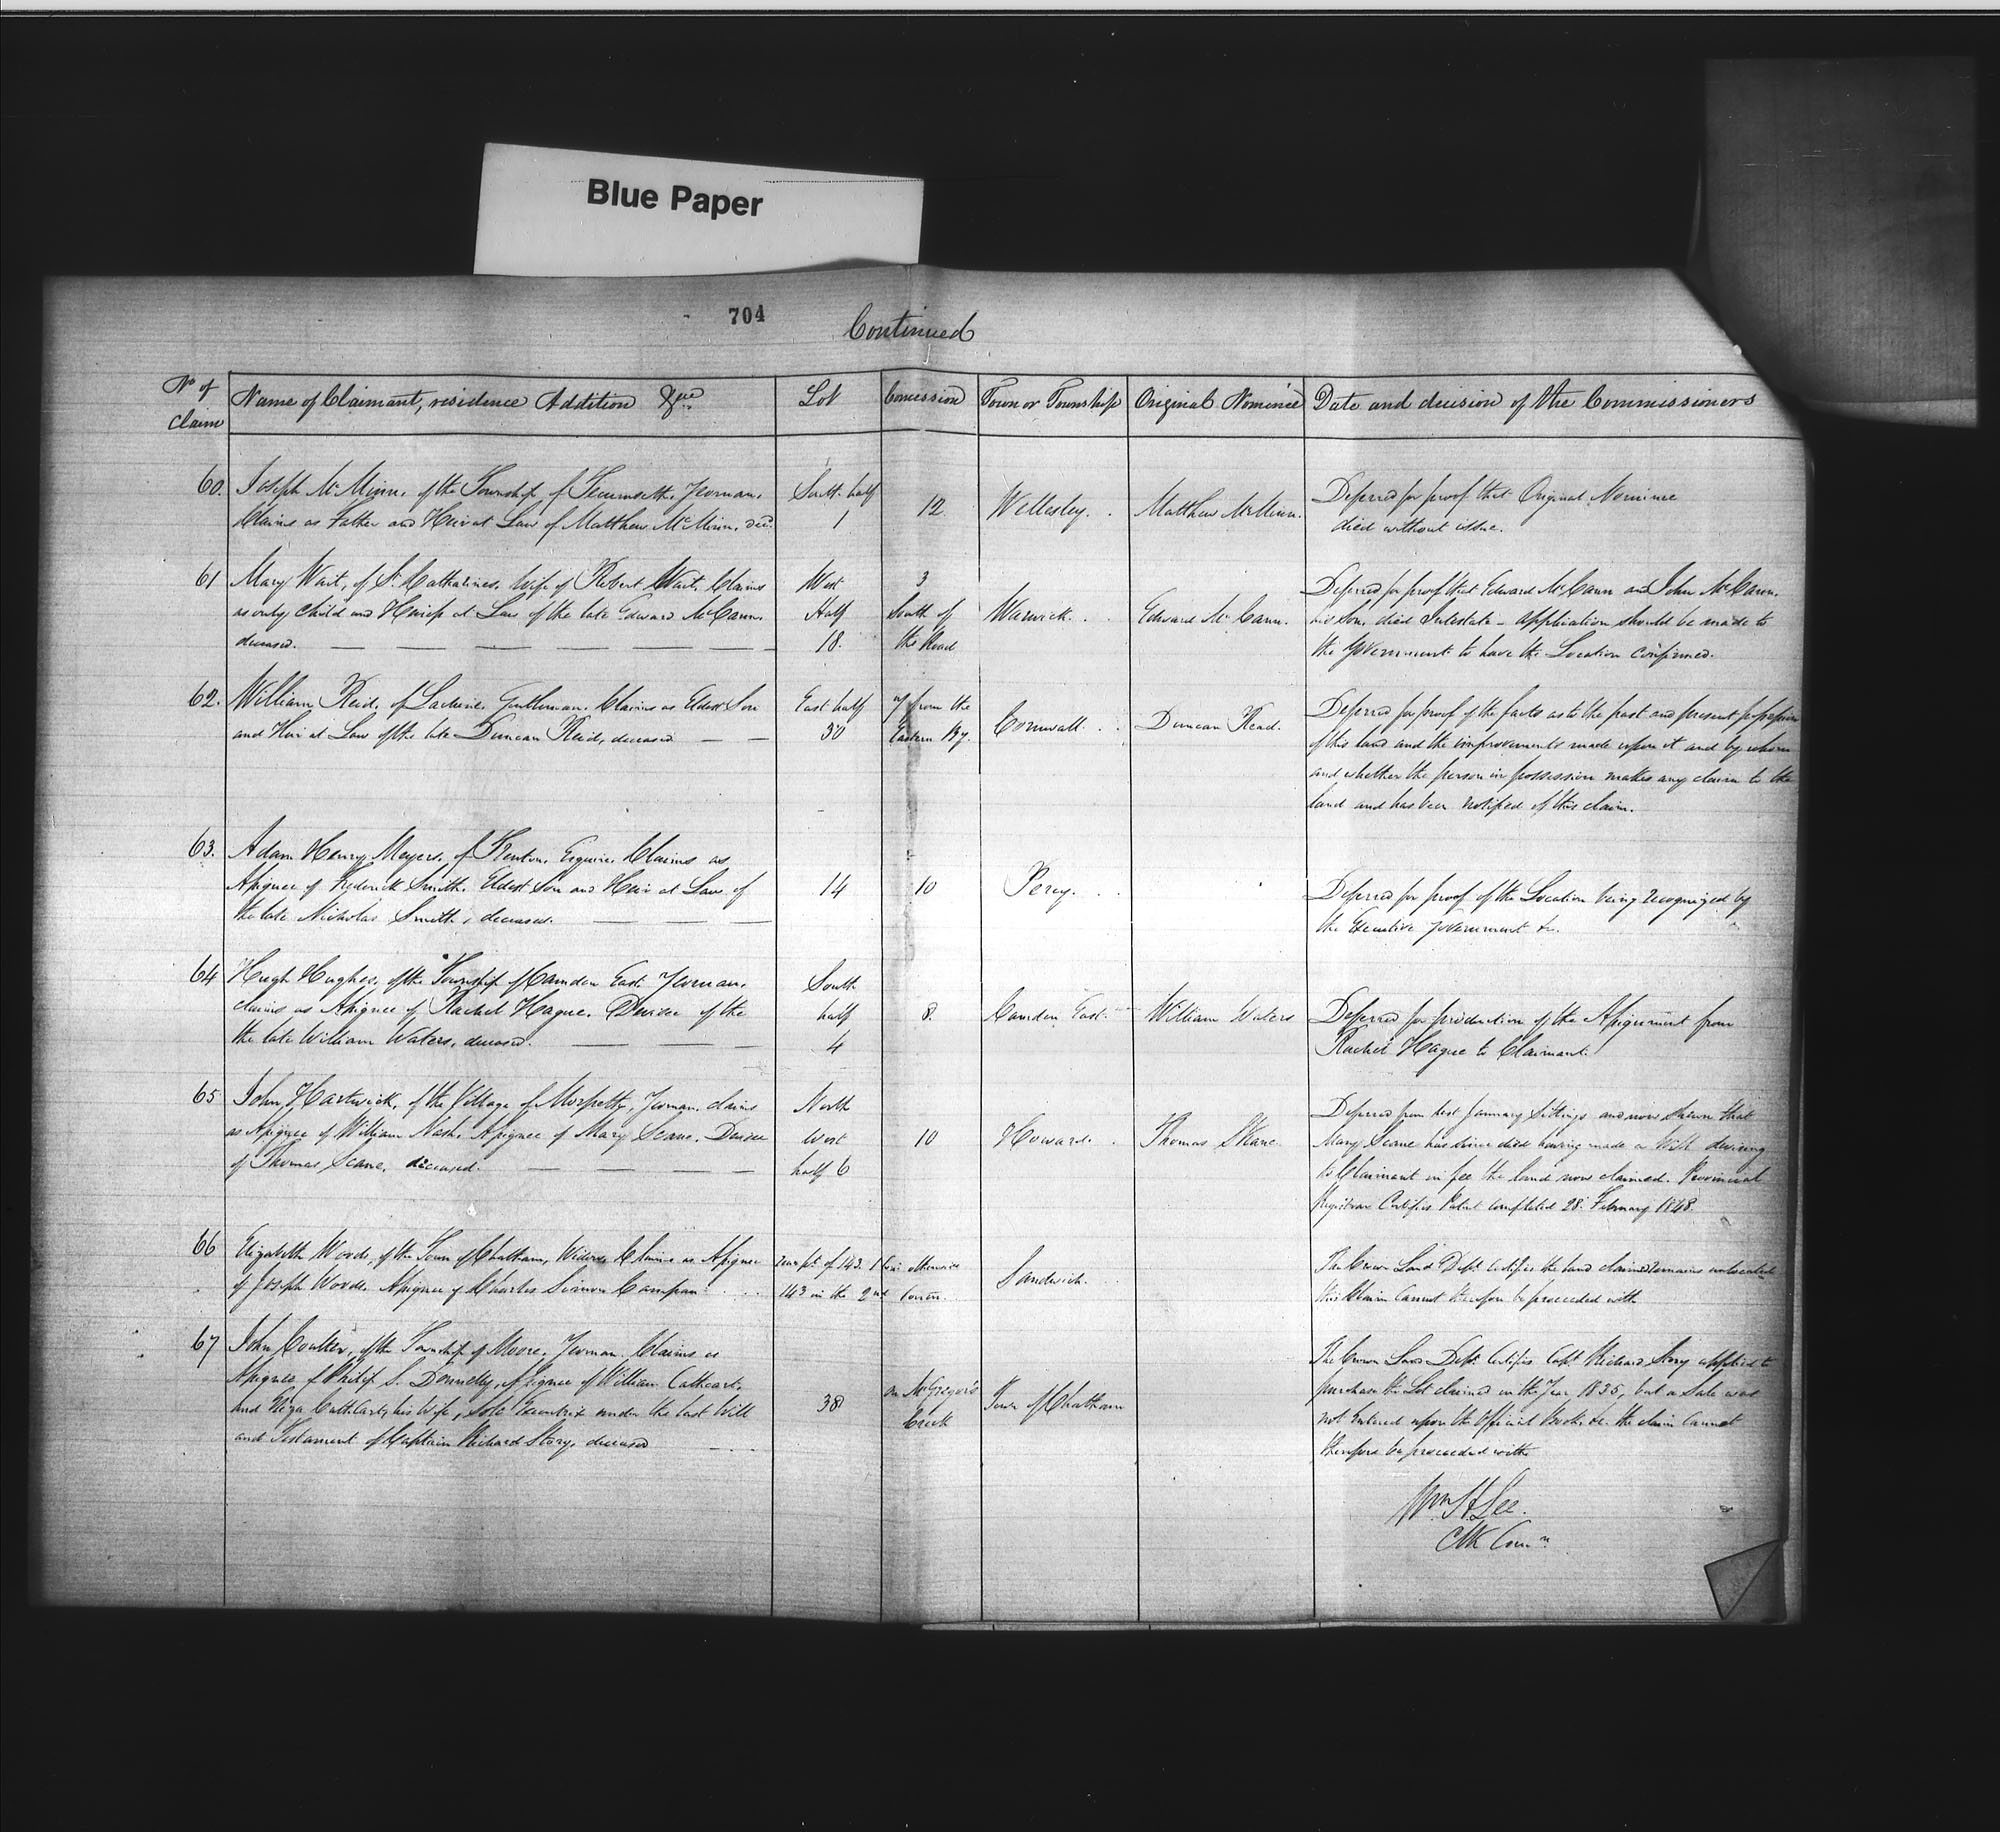 Blue Paper
704
Continued
No of Claim
Name of Claimant, residence Addition &ca
Lot
Concession
Town or Township
Original Nominee
Date and decision of the Commissioners
60.
Joseph McMinn, of the Township of Tecumseth, Yeoman,
Claims as Father and Heir at Law of Matthew McMinn, decd.
South half
1
12
Wellesley.
Matthew McMinn.
Deferred for proof that Original Nominee
died without issue.
61
Mary Wait, of St. Catharines, wife of Robert Wait, Claims
as only Child and Heiress at Law of the late Edward McCann,
deceased.
West
Half
18.
3
South of
the Road
Warwick.
Edward McCann.
Deferred for proof that Edward McCann and John McCann,
his Son, died Intestate - application should be made to
the Government to have the Location confirmed.
62.
William Reid, of Lachine, Gentleman, Claims as Eldest Son
and Heir at Law of the late Duncan Reid, deceased
East half
30
9 from the
Eastern By.
Cornwall.
Duncan Read.
Deferred for proof of the facts as to the past and present possession
of this land and the improvements made upon it and by whom
and whether the person in possession makes any claim to the
land and has been notified of this claim.
63.
Adam Henry Meyers, of Trenton, Esquire, Claims as
Assignee of Frederick Smith, Eldest Son and Heir at Law of
the late Nicholas Smith, deceased.
14
10
Percy.
Deferred for proof of the Location being recognized by
the Executive Government &c.
64
Hugh Hughes, of the Township of Camden East, Yeoman,
claims as Assignee of Rachel Hague, Devisee of the
the late William Waters, deceased.
South
half
4
8.
Camden East.
William Waters
Deferred for production of the Assignment from
Rachel Hague to Claimant.
65
John Hartwick, of the Village of Morpeth, Yeoman, claims
as Assignee of William Nash, Assignee of Mary Scane, Devisee
of Thomas Scane, deceased.
North
West
half 6
10
Howard.
Thomas Skane
Deferred from last January Sittings and now shewn that
Mary Scane has since died having made a Will devising
to Claimant in fee the land now claimed. Provincial
Registrar Certifies Patent completed 28. February 1848.
66
Elizabeth Woods, of the Town of Chatham, Widow, Claims as Assignee
of Joseph Woods, Assignee of Charles Simon Campau
Rear pt. of 143. 1 Con otherwise
143 in the 2nd Concn.
Sandwich.
The Crown Land Dept. certifies the land claimed remains unlocated
this Claim cannot therefore be proceeded with
67
John Coulter, of the Township of Moore, Yeoman, Claims as
Assignee of Philip S. Donnelly, Assignee of William Cathcart,
and Eliza Cathcart, his Wife, Sole Executrix under the last Will
and Testament of Captain Richard Story, deceased
38
on McGregor's
Creek
Town of Chatham
The Crown Land Dept. Certifies Capt. Richard Story applied to
purchase the Lot claimed in the Year 1835, but a Sale was
not Entered upon the Official Books &c. the claim Cannot
therefore be proceeded with
Wm H Lee.
Clk Comn.